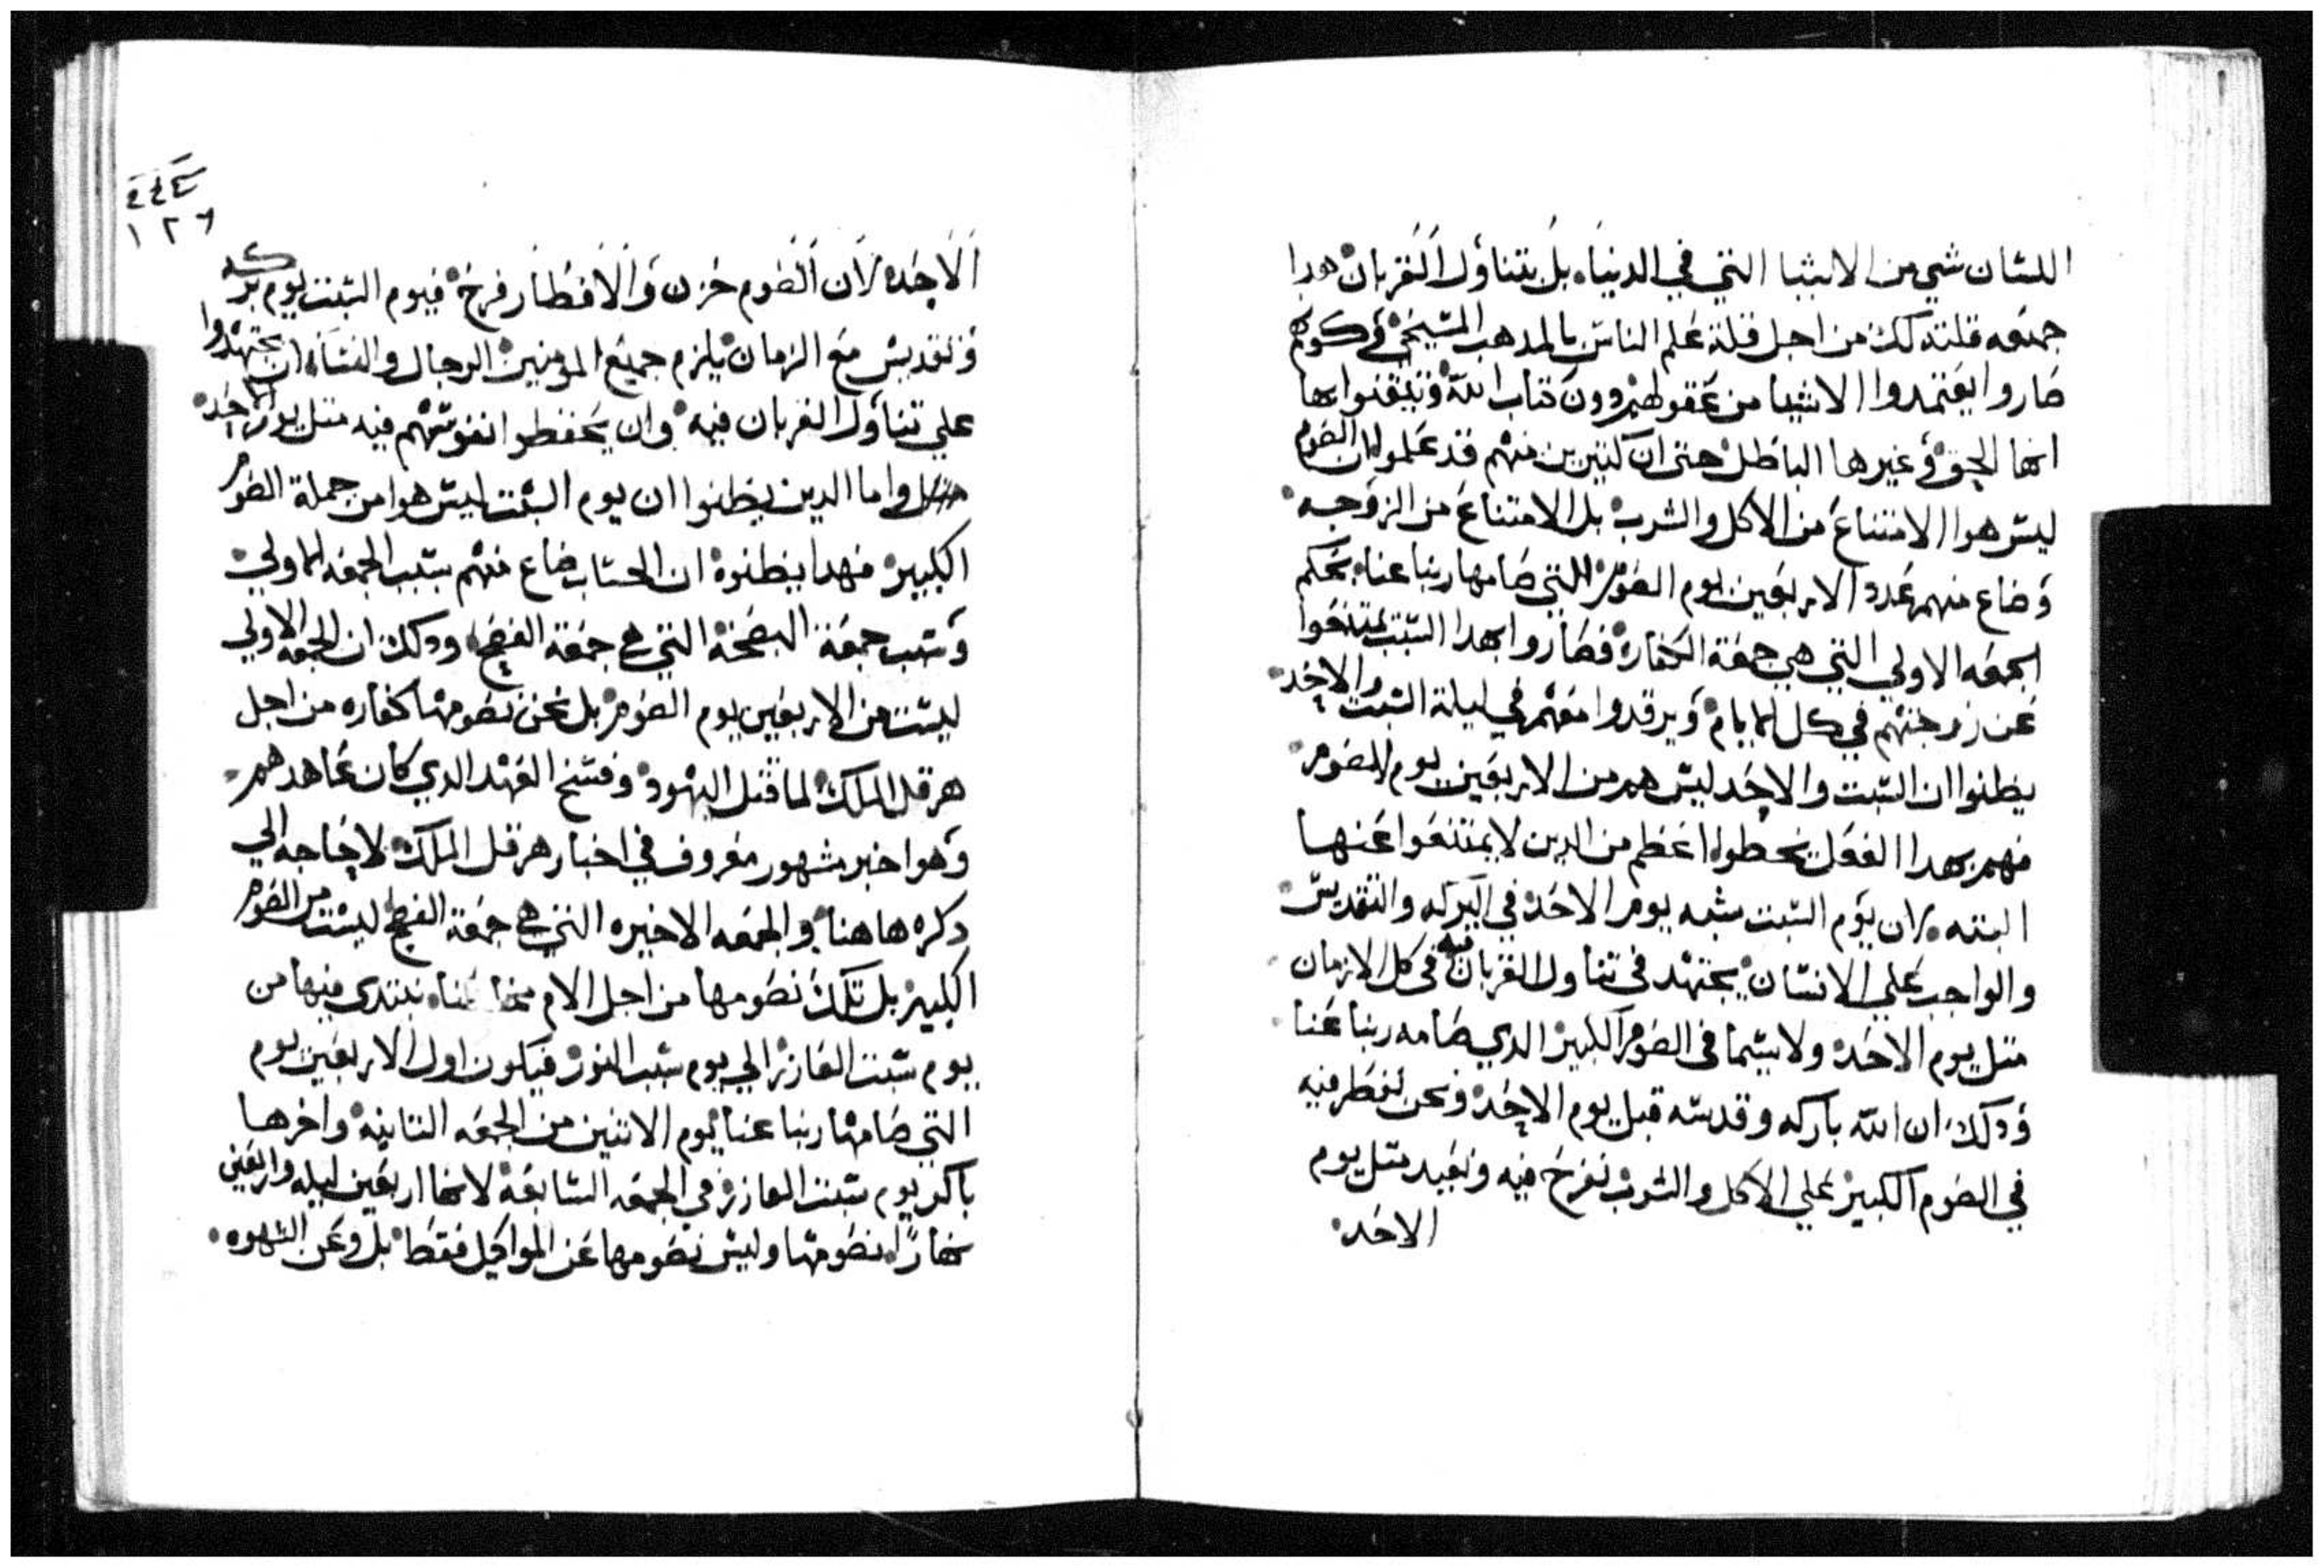 اللسان شي من الاشيا التي في الدنيا، بل يتناول القربان هدا
جمعه قلت دلك من اجل قلة علم الناس بالمدهب المسيحي في كونهم
صاروا يعتمدوا الاشيا من عقولهم دون كتاب الله وتيقنوا بها
انها الحق وغيرها الباطل حتى ان كتيرين منهم قد علموا ان الصوم
ليس هوا الامتناع من الاكل والشرب بل الامتناع من الزوجه
وضاع منهم عدد الاربعين يوم الصوم التي صامها ربنا عنا بحكم
الجمعه الاولي التي هي جمعة الكفاره فصاروا بهدا السبب يمتنعوا
عن زوجتهم في كل الايام ويرقدوا معهم في ليلة السبت والاحد
يظنوا ان السبت والاحد ليس هم من الاربعين يوم الصوم
فهم بهدا الفعل يخطوا اعظم من الدين لا يمتنعوا عنها
البته لان يوم السبت شبه يوم الاحد في البركه والتقديس
والواجب علي الانسان يجتهد في تناول القربان فيه في كل الازمان
متل يوم الاحد ولا سيما في الصوم الكبير الدي صامه ربنا عنا
ودلك ان الله باركه وقدسه قبل يوم الاحد ونحن نفطر فيه
في الصوم الكبير علي الاكل والشرب نفرح فيه ونعيد متل يوم
الاحد
١٢٦
الاحد لان الصوم حزن والافطار فرح فيوم السبت يوم بركه
وتقديس مع الزمان يلزم جميع المومنين الرجال والنسا ان يجتهدوا
علي تناول القربان فيه وان يحفظوا نفوسهم فيه متل يوم الاحد
واما الدين يظنوا ان يوم السبت ليس هوا من جملة الصوم
الكبير فهدا يظنوه ان الحساب ضاع منهم بسبب الجمعه الاولي
وسبب جمعة البصخة التي هي جمعة الفصح ودلك ان الجمعه الاولي
ليست من الاربعين يوم الصوم بل نحن نصومها كفاره من اجل
هرقل الملك لما قتل اليهود وفسخ العهد الدي كان عاهدهم
وهوا خبر مشهور معروف في اخبار هرقل الملك لا حاجه الي
دكره هاهنا والجمعه الاخيره التي هي جمعة الفصح ليست من الصوم
الكبير بل تلك نصومها من اجل الام نبتدي فيها من
يوم سبت العازر الي يوم سبت النور فيكون اول الاربعين يوم
التي صامها ربنا عنا يوم الاتنين من الجمعه التانيه واخرها
باكر يوم سبت العازر في الجمعه السابعة لانها اربعين ليله واربعين
نهارًا نصومها وليس نصومها عن المواكيل فقط بل وعن الشهوه